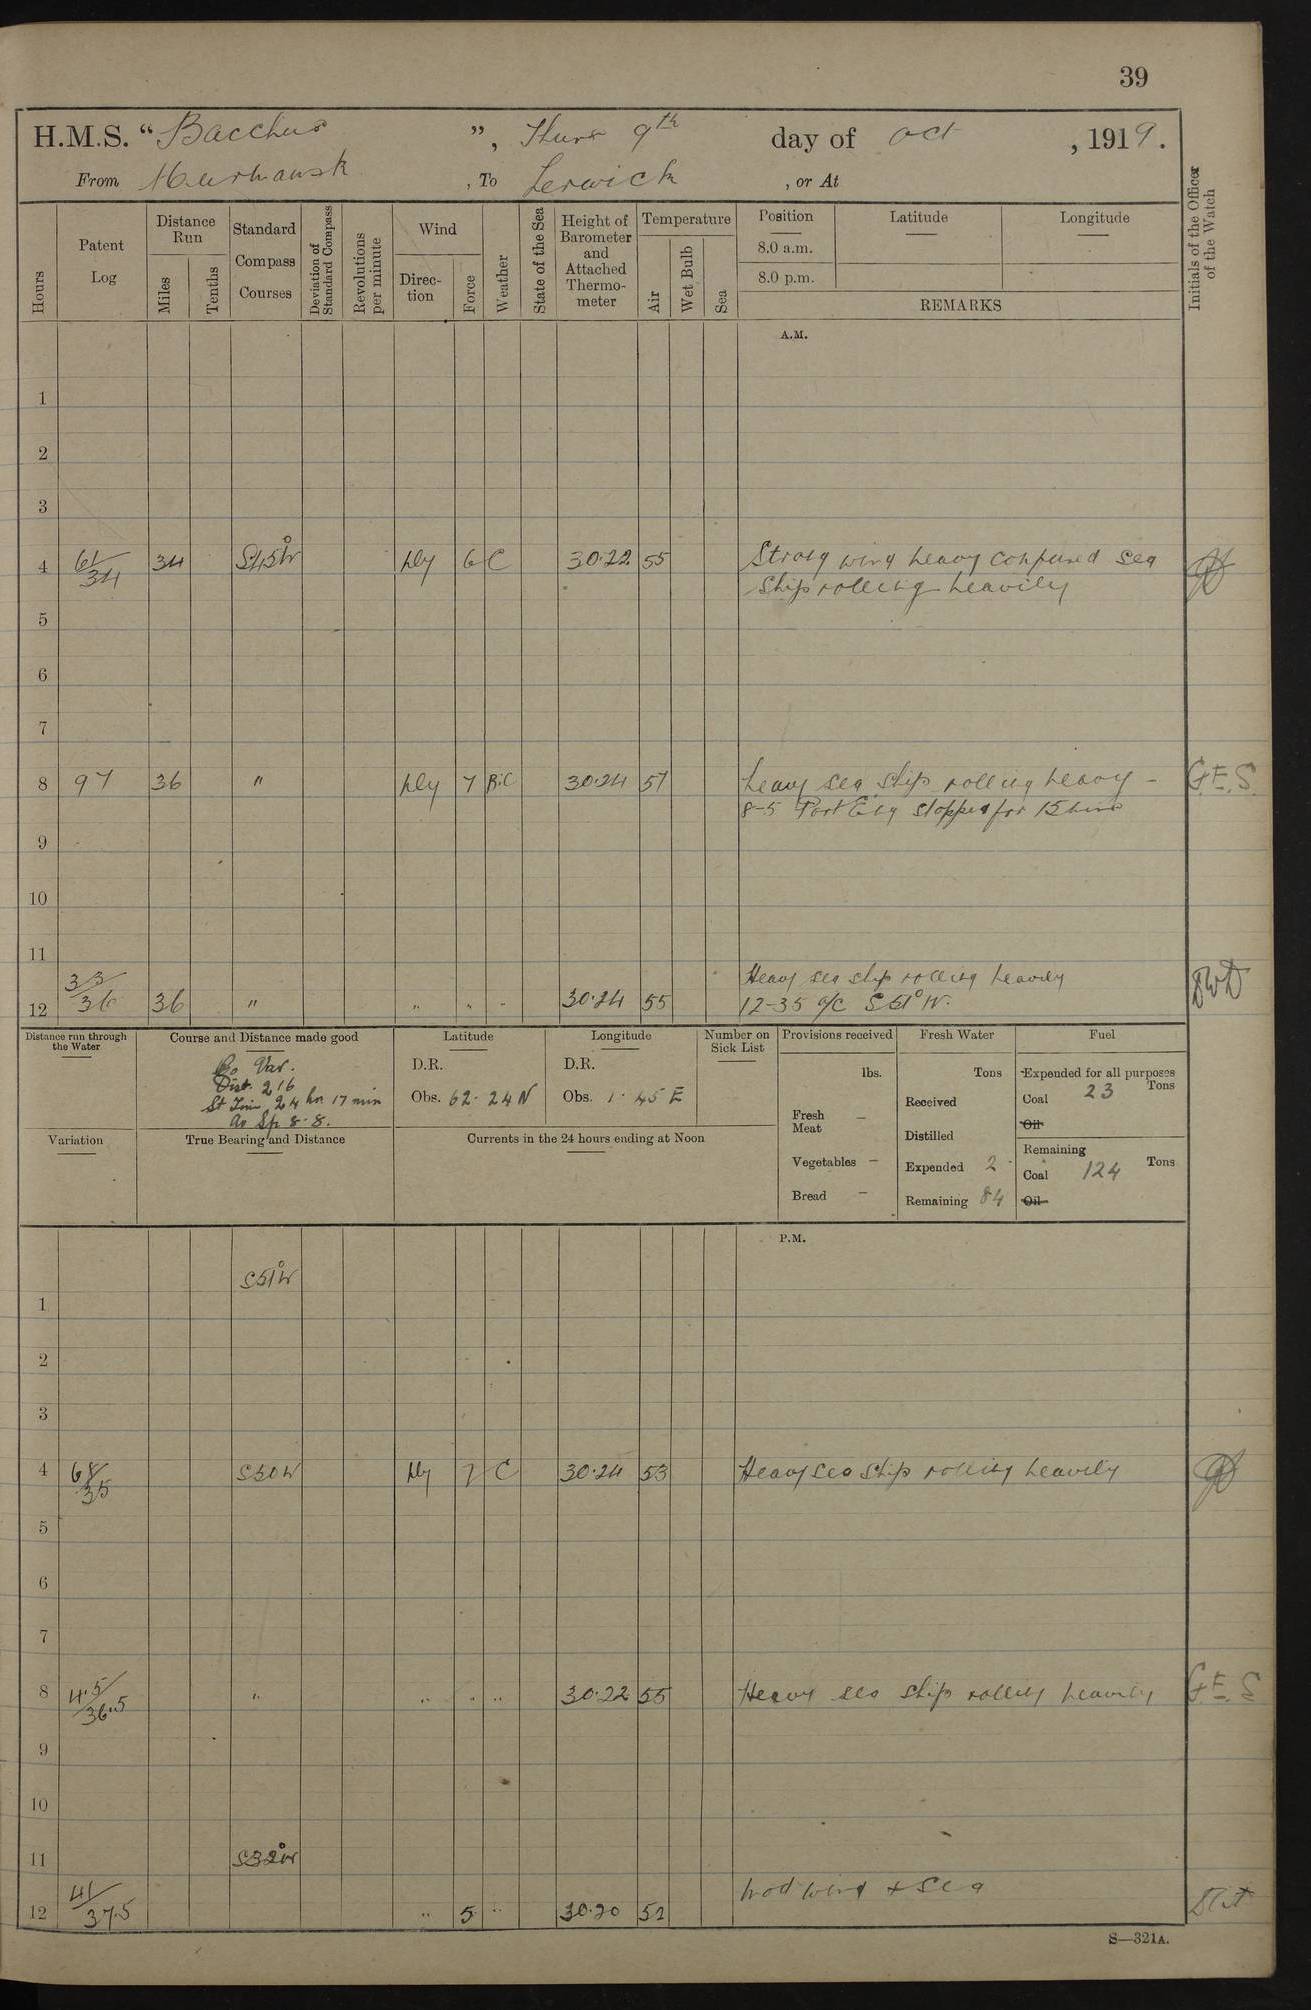 39
H.M.S. “ Bacchus ”, Thurs 9th day of Oct , 1919.
From Murmansk , To Lerwick , or At
Hours
Patent Log
Distance Run
Miles
Tenths
Standard Compass Courses
Deviation of Standard Compass
Revolutions per minute
Wind
Direction
Force
Weather
State of the Sea
Height of Barometer and Attached Thermometer
Temperature
Air
Wet Bulb
Sea
Position
8.0 a.m.
8.0 p.m.
Latitude
Longitude
REMARKS
Initials of the Officer of the Watch
A.M.
1
2
3
4 61/34 34 S45°W Nly 6 C 30.22 55 Strong wind heavy confused sea
Ship rolling heavily
5
6
7
8 97 36 " Nly 7 B.C 30.24 57 heavy sea ship rolling heavy - G.E.S.
8-5 Port Eng stopped for 15 mins
9
10
11
Heavy sea ship rolling heavily
12 33/36 36 " " " " 30.24 55 12-35 a/c S 51° W.
Distance run through the Water
Course and Distance made good
Co Var.
Dist. 216
St Time 24 hrs 17 min
av Sp 8.8.
Latitude
D.R.
Obs. 62. 24 N
Longitude
D.R.
Obs. 1. 45 E
Number on Sick List
Provisions received
lbs.
Fresh Meat —
Vegetables —
Bread —
Fresh Water
Tons
Received
Distilled
Expended 2
Remaining 84
Fuel
Expended for all purposes
Coal 23 Tons
Oil
Remaining
Coal 124 Tons
Oil
Variation
True Bearing and Distance
Currents in the 24 hours ending at Noon
P.M.
S51°W
1
2
3
4 68/35 S50W Nly 7 C 30.24 53 Heavy sea ship rolling heavily
5
6
7
8 4.5/36.5 " " " " 30.22 55 Heavy sea ship rolling heavily G.E.S
9
10
11 S32°W
12 41/37.5 " 5 " 30.20 52 mod wind & sea
S—321A.